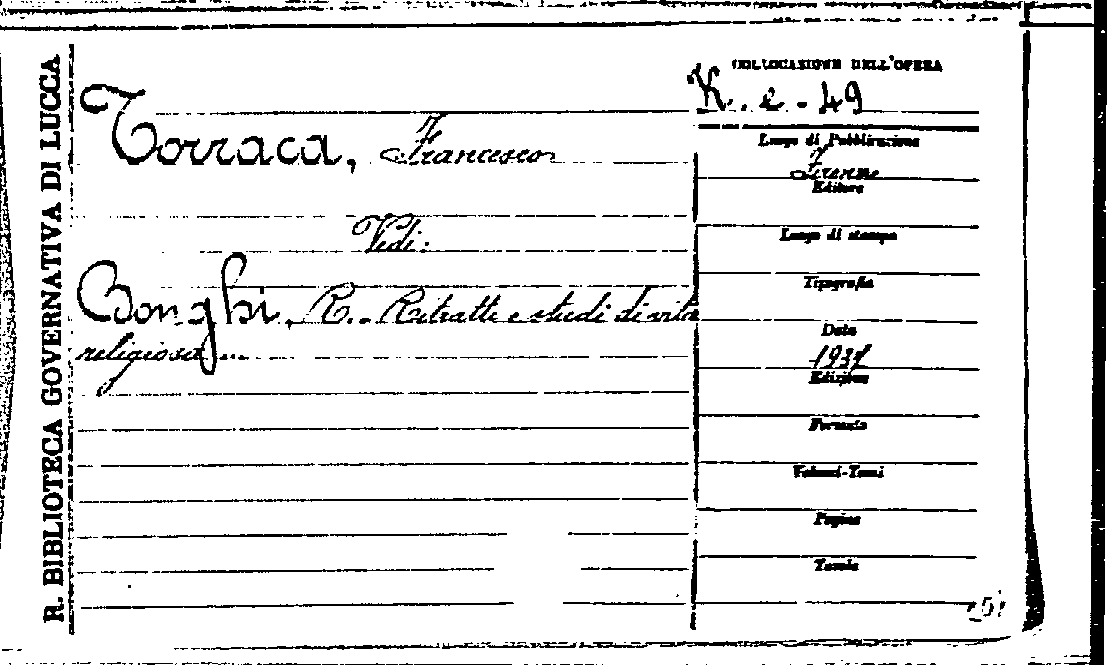 R. BIBLIOTECA GOVERNATIVA DI LUCCA
COLLOCAZIONE DELL'OPERA
K. e - 49
Torraca, Francesco
Vedi:
Bonghi, R. - Ritratti e studi di vita
religiosa ...
Luogo di Pubblicazione
Firenze
Editore
Luogo di stampa
Tipografia
Data
1937
Edizione
Formato
Volumi-Tomi
Pagine
Tavole